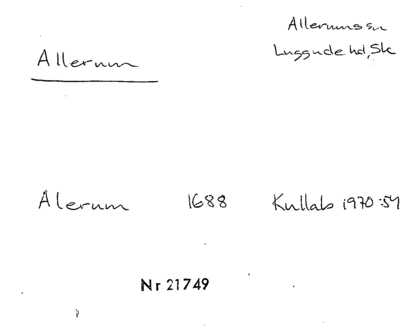 Allerums sn
Luggude hd, Sk
Allerum
Alerum 1688 Kullabo 1970:54
Nr 21749